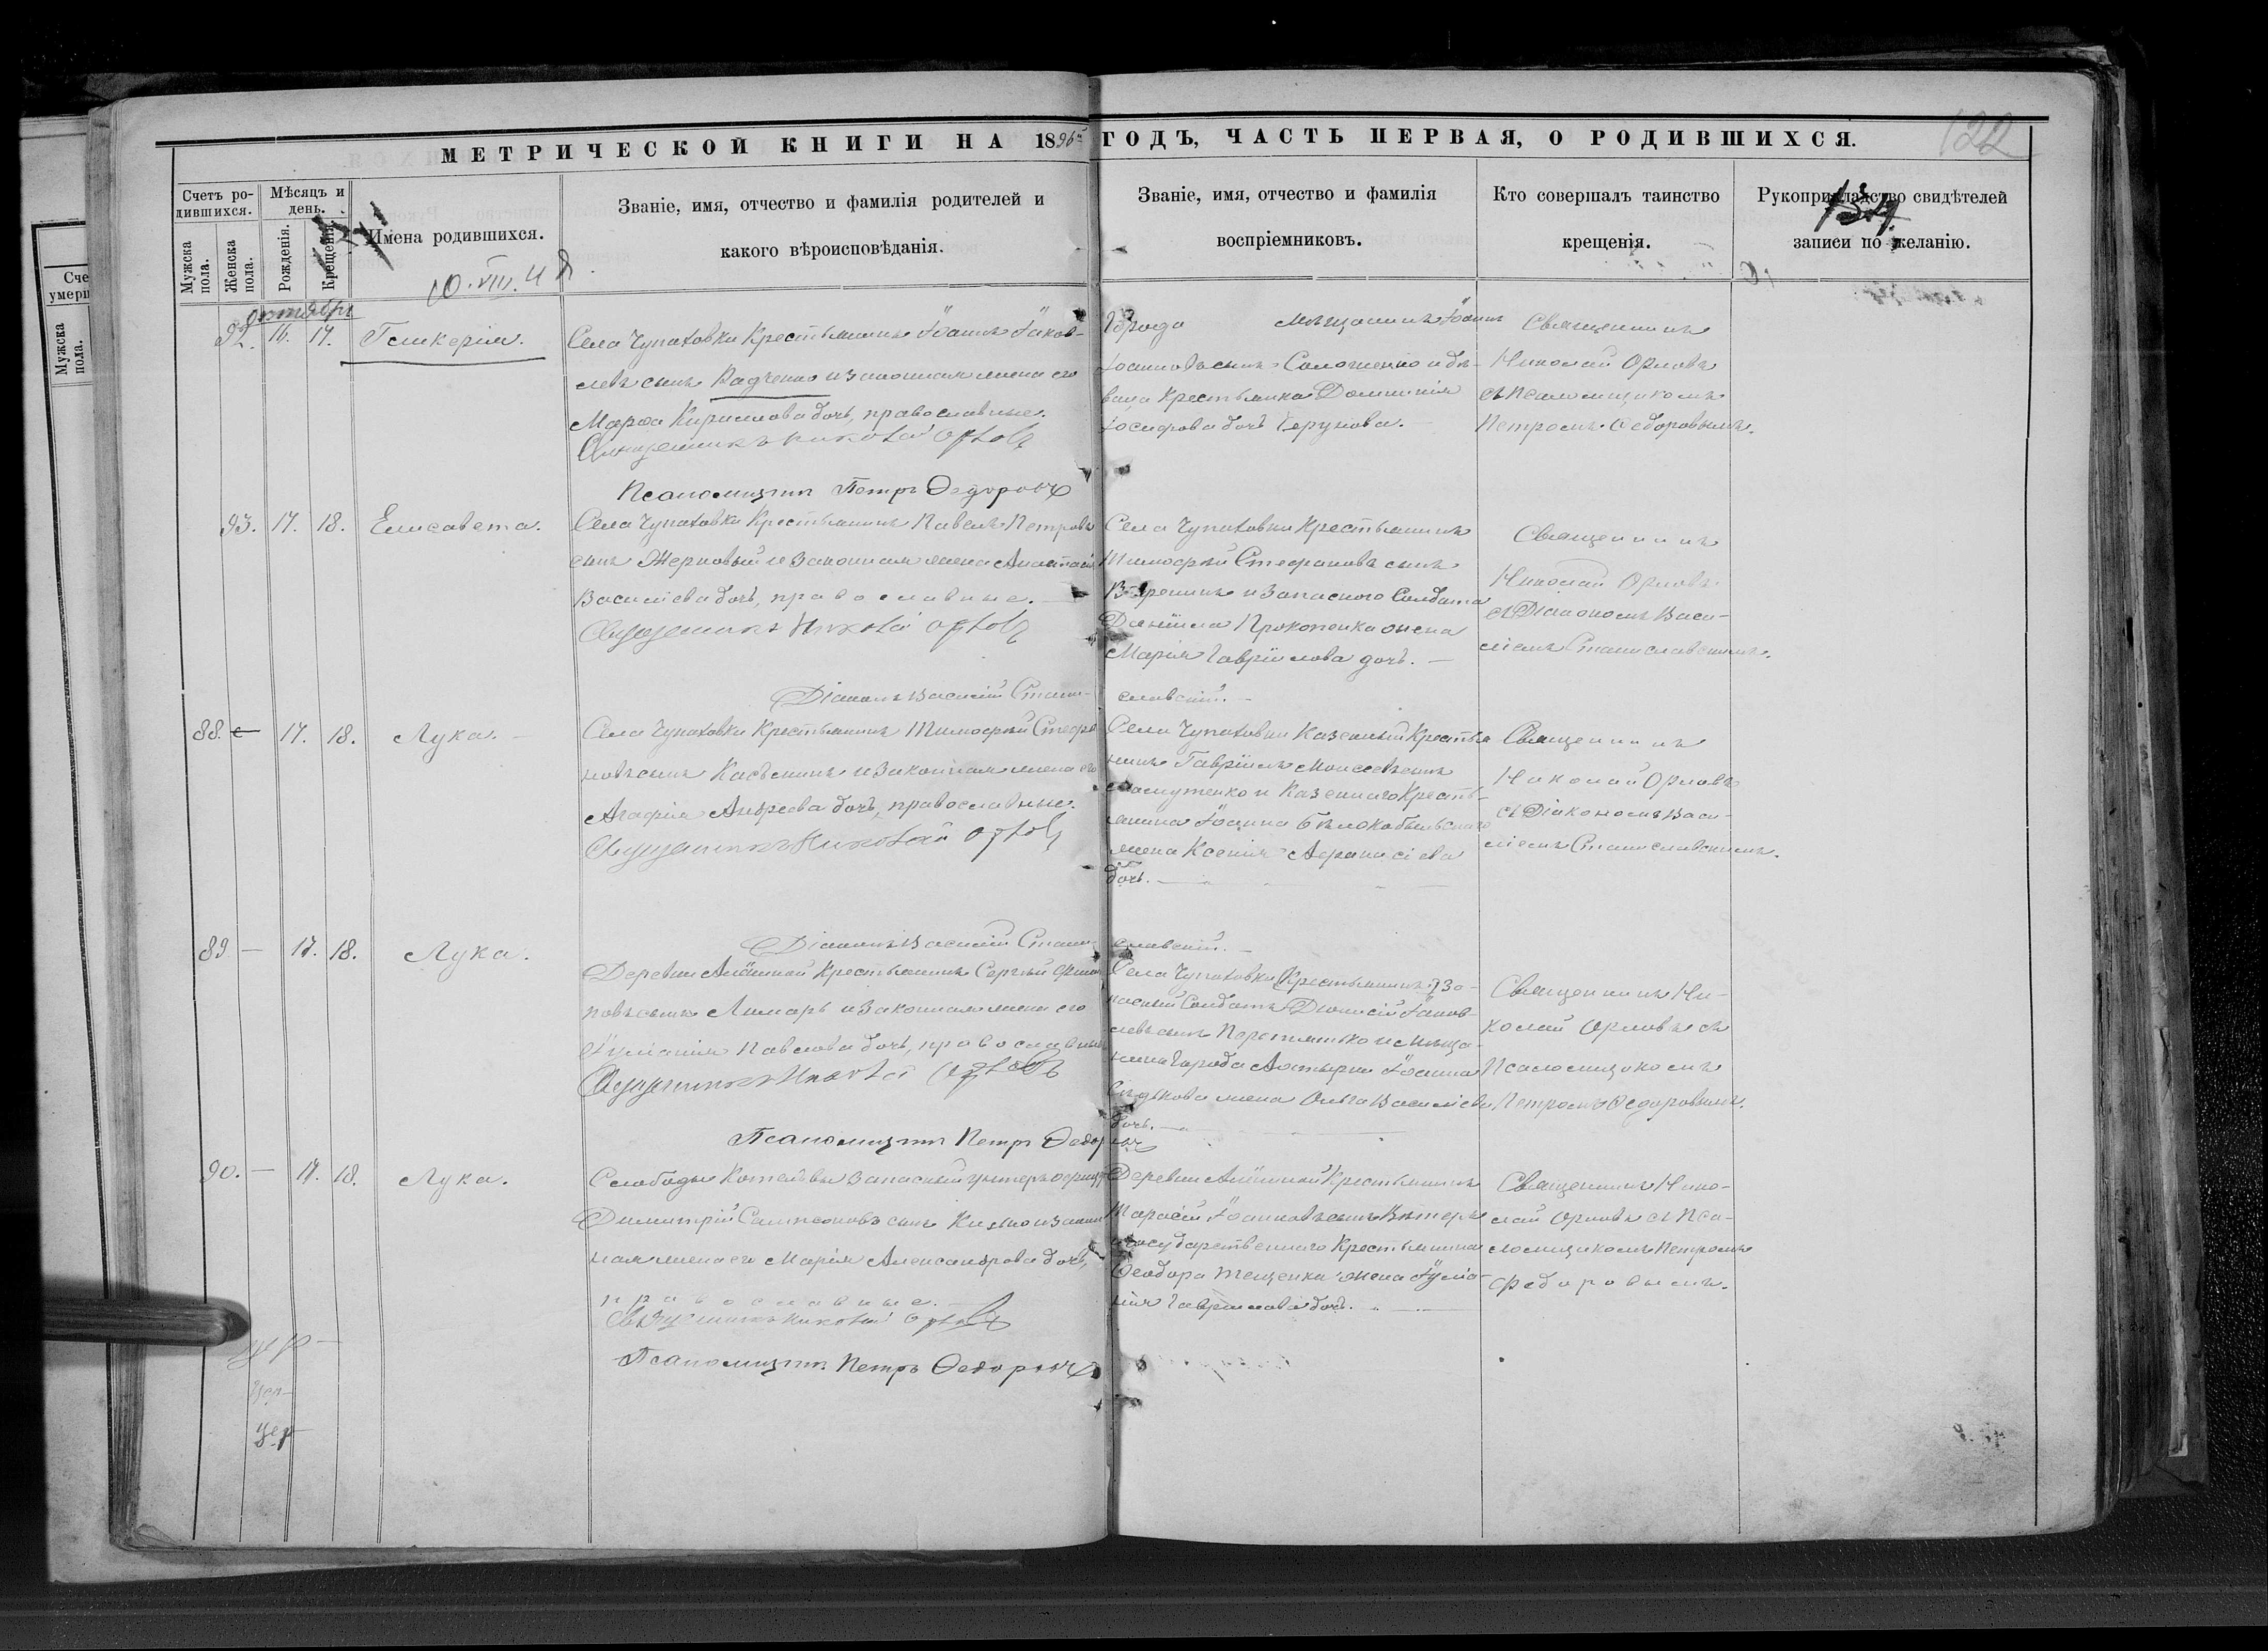 МЕТРИЧЕСКОЙ КНИГИ НА 1896й ГОДЪ, ЧАСТЬ ПЕРВАЯ, О РОДИВШИХСЯ.
122
Счетъ ро-
дившихся.
Мужска
пола.
Женска
пола.
Мѣсяцъ и
день.
Рожденія.
Крещенія.
Имена родившихся.
10.VIII.48
Званіе, имя, отчество и фамилія родителей и
какого вѣроисповѣданія.
Званіе, имя, отчество и фамилія
воспріемниковъ.
Кто совершалъ таинство
крещенія.
Рукоприкладство свидѣтелей
записи по желанію.
Сче
умерш
Мужска
пола.
Октября
92. 16. 17. Гликерія.
Села Чупаховки Крестьянинъ Іоаннъ Іаков-
левъ сынъ Радченко и законная жена его
Марѳа Кириллова дочь, православные.
Священникъ Николай Орловъ
Псаломщикъ Петръ Ѳедоровъ
Города мѣщанинъ Іоаннъ
Іоанновъ сынъ Солошенко и дѣ-
вица Крестьянка Домникія
Іосифова дочь
Священникъ
Николай Орловъ
съ Псаломщикомъ
Петромъ Ѳедоровымъ.
93. 17. 18. Елисавета.
Села Чупаховки Крестьянинъ Павелъ Петровъ
сынъ Жерновый и законная жена Анастасія
Василіева дочь, православные.
Священникъ Николай Орловъ
Діаконъ Василій Стани-
славскій.
Села Чупаховки Крестьянинъ
Тимоѳей Стефановъ сынъ
и запаснаго Солдата
Даніила Прокопенка жена
Марія Гавріилова дочь.
Священникъ
Николай Орловъ
съ Діакономъ Васи-
ліемъ Станиславскимъ.
88. 17. 18. Лука.
Села Чупаховки Крестьянинъ Тимоѳей Стефа-
новъ сынъ Касьянинъ и законная жена его
Агафія Андреева дочь, православные.
Священникъ Николай Орловъ
Діаконъ Василій Стани-
славскій.
Села Чупаховки Казенный Крестья-
нинъ Гавріилъ Моисеевъ сынъ
и Казеннаго Кресть-
янина Іоанна Бѣлокобыльскаго
жена Ксенія Аѳанасіева
дочь.
Священникъ
Николай Орловъ
съ Діакономъ Васи-
ліемъ Станиславскимъ.
89 — 17. 18. Лука.
Деревни Алёшной Крестьянинъ Сергѣй
повъ сынъ Лимарь и законная жена его
Іуліанія Павлова дочь, православные
Священникъ Николай Орловъ
Псаломщикъ Петръ Ѳедоровъ
Села Чупаховки Крестьянинъ За-
пасный Солдатъ Діонисій Іаков-
левъ сынъ и мѣща-
нина Города Ахтырки Іоанна
жена Ольга Василіева
дочь.
Священникъ Ни-
колай Орловъ съ
Псаломщикомъ
Петромъ Ѳедоровымъ.
90. — 17. 18. Лука.
Слободы Котельвы Запасный унтеръ офицеръ
Димитрій Сампсоновъ сынъ и закон-
ная жена его Марія Александрова дочь,
православные.
Священникъ Николай Орловъ
Псаломщикъ Петръ Ѳедоровъ
Деревни Алёшной Крестьянинъ
Тарасій Іоанновъ сынъ
и государственнаго Крестьянина
Ѳеодора Тещенка жена Іуліа-
нія Гавріилова дочь.
Священникъ Нико-
лай Орловъ съ Пса-
ломщикомъ Петромъ
Ѳедоровымъ.